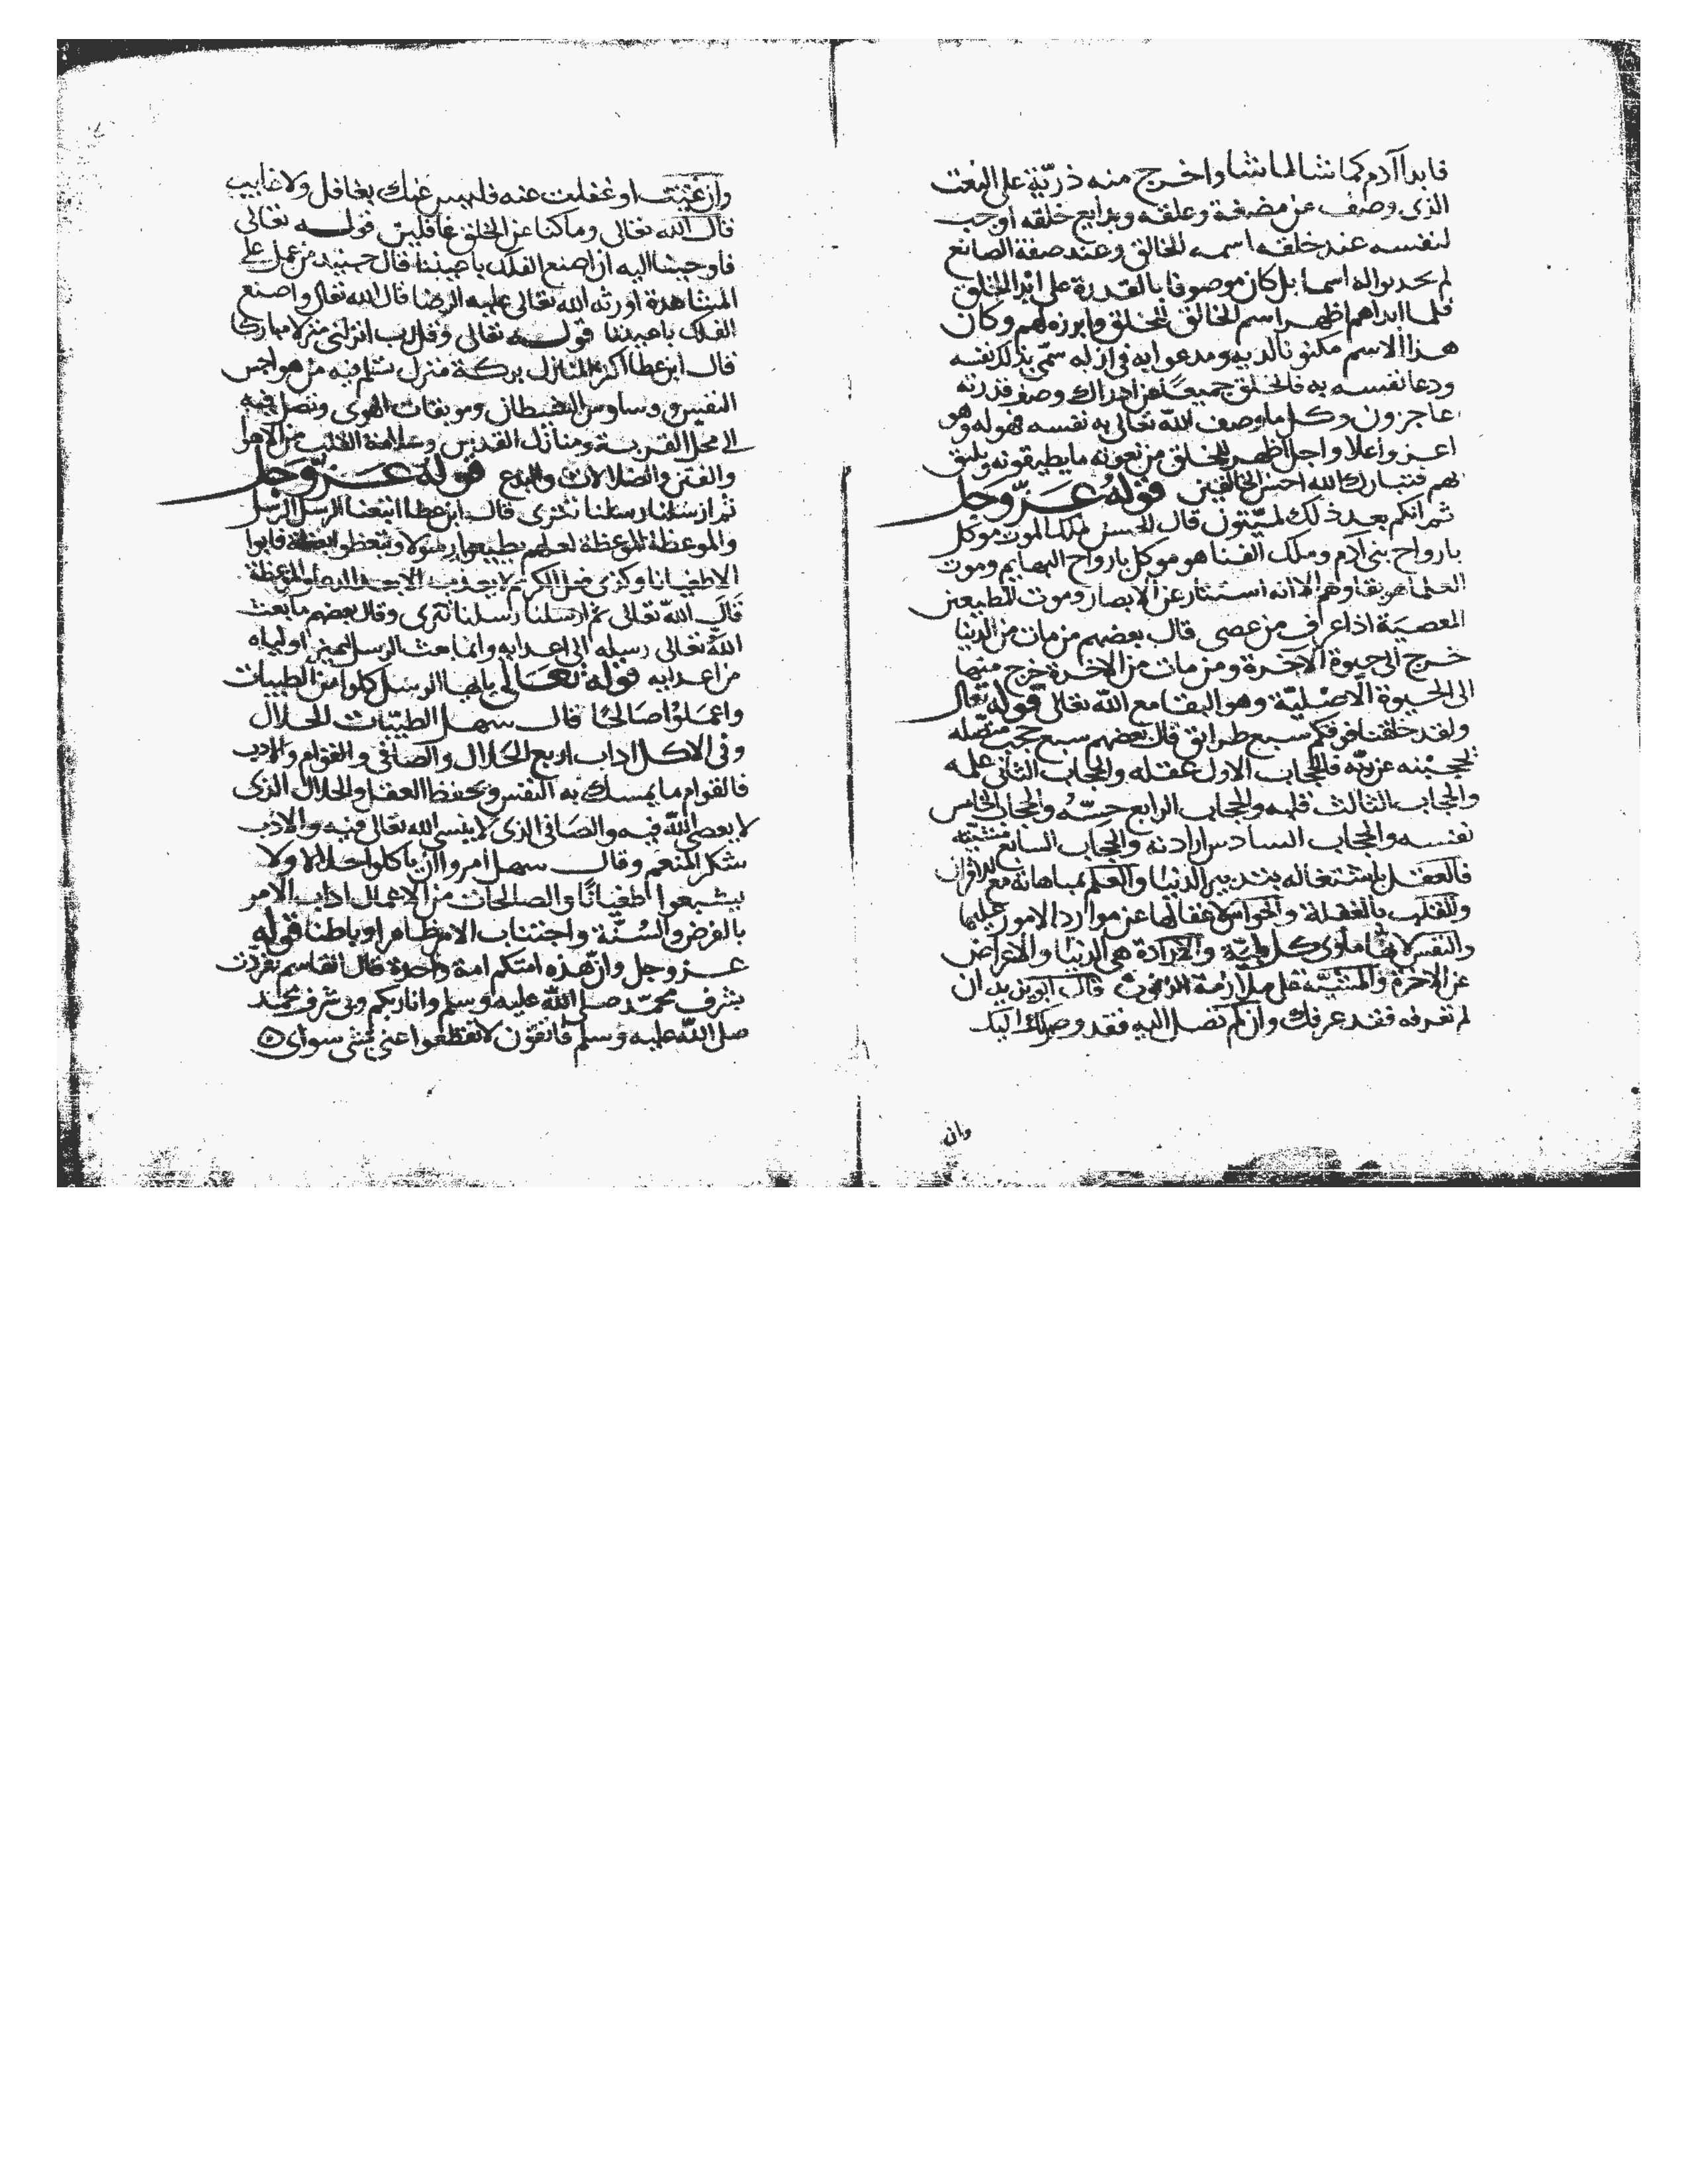 فابدا آدم كما شا لما شا واخرج منه ذرّيّة على النعت
الذى وصف من مضغة وعلقه وبدايع خلقه اوجب
لنفسه عند خلقه اسم الخالق وعند صفة الصانع
لم يحدثوا له اسما بل كان موصوفا بالقدرة على ابدا الخلق
فلما ابداهم اظهر اسم الخالق للخلق وابرزه لهم وكان
هذا الاسم مكنونا لديه ومدعوا به فى ازله سمّى بذلك نفسه
ودعا نفسه به فالخلق جميعًا عن ادراك وصف قدرته
عاجزون وكل ما وصف الله تعالى به نفسه فهو له وهو
اعز واعلا واجل اظهر للخلق من نعوته ما يطيقونه ويليق
بهم فتبارك الله احسن الخالقين قوله عزّ وجل
ثم انكم بعد ذلك لميّتون قال الحسن ملك الموت موكل
بارواح بنى آدم وملك الفنا هو موكل بارواح البهايم وموت
العلما هو بقاوهم الا انه استتار عن الابصار وموت المطيعين
المعصية اذا عرف من عصى قال بعضهم من مات من الدنيا
خرج الى حيوة الآخرة ومن مات من الآخرة خرج منها
الى الحيوة الاصليّة وهو البقا مع الله تعالى قوله تعالى
ولقد خلقنا فوقكم سبع طرائق قال بعضهم سبع حجب متصله
تحجبنه عن ربّه فالحجاب الاول عقله والحجاب الثانى علمه
والحجاب الثالث قلبه والحجاب الرابع حسّه والحجاب الخامس
نفسه والحجاب السادس ارادته والحجاب السابع مشيّته
فالعقل باشتغاله بتدبير الدنيا والعلم بمباهاته مع الاقران
والقلب بالغفلة والحواس لاغفالها عن موارد الامور عليها
والنفس لانها ماوى كل بليّة والارادة هى الدنيا والاعراض
عن الآخرة والمشيّه على ملازمة الذنوب قال ابو يزيد ان
لم تعرفه فقد عرفك وان لم تصل اليه فقد وصلك اليك
وان
وان غبت او غفلت عنه فليس عنك بغافل ولا غايب
قال الله تعالى وما كنا عن الخلق غافلين قوله تعالى
فاوحينا اليه ان اصنع الفلك باعيننا قال جنيد من عمل على
المشاهدة اورثه الله تعالى عليه الرضا قال الله تعالى واصنع
الفلك باعيننا قوله تعالى وقل رب انزلنى منزلا مباركا
قال ابن عطا اكرم المنازل بركة منزل تسلم فيه من هواجس
النفس ووساوس الشيطان وموبقات الهوى وتصل فيه
الى محل القربة ومنازل القدس وسلامة القلب من الاهوا
والفتن والضلالات والبدع قوله عزّ وجل
ثم ارسلنا رسلنا تترى قال ابن عطا اتبعنا الرسل الرسل
والموعظة الموعظة لعلهم يطيعوا رسولا ويتعظوا بعظة فابوا
الا طغيانا
قال الله تعالى ثم ارسلنا رسلنا تترى وقال بعضهم ما بعث
الله تعالى رسله الى اعدايه وانما بعث الرسل ليميز اولياه
من اعدايه قوله تعالى يا يها الرسل كلوا من الطيبات
واعملوا صالحًا قال سهل الطيّبات الحلال
وفى الاكل اداب اربع الحلال والصافى والقوام والادب
فالقوام ما يمسك به النفس ويحفظ العقل والحلال الذى
لا يعصى الله فيه والصافى الذى لا ينسى الله تعالى فيه والادب
شكر المنعم وقال سهل امروا ان ياكلوا حلالا ولا
يشبعوا طغيانًا والصالحات من الاعمال اداب الامر
بالفرض والسنّة واجتناب الامر ظاهرا وباطنا قوله
عز وجل وان هذه امتكم امة واحدة قال القاسم تفردت
بشرف محمّد صلى الله عليه وسلم وانا ربكم وبى شرف محمد
صلى الله عليه وسلم فاتقون لا تقطعوا عنى بشئ سواى